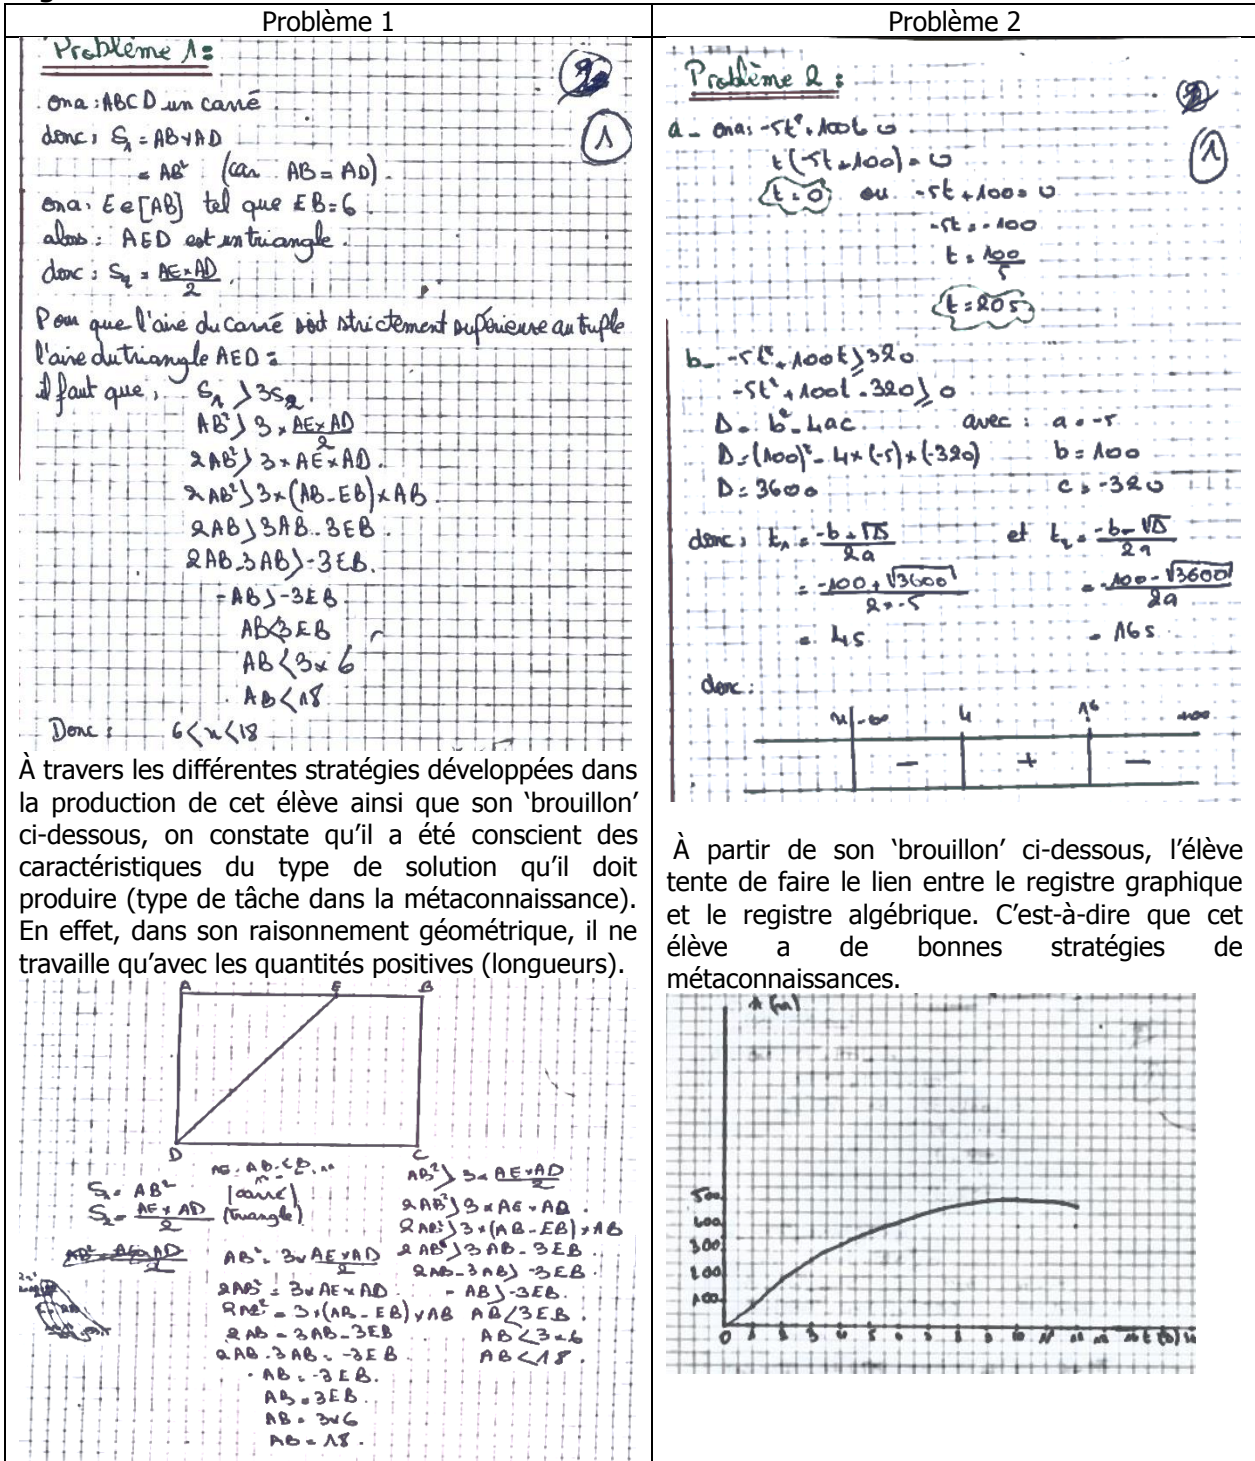 Problème 1
Problème 1:
1
ona: ABCD un carré
donc: S₁ = AB×AD
= AB² (car AB = AD).
ona: E∈[AB] tel que EB=6
alors: AED est un triangle.
donc: S₂ = AE×AD/2
Pour que l'aire du carré soit strictement supérieure au triple
l'aire du triangle AED:
il faut que, S₁ > 3S₂.
AB² > 3×AE×AD/2
2AB² > 3×AE×AD.
2AB² > 3×(AB-EB)×AB.
2AB > 3AB-3EB.
2AB-3AB > -3EB.
-AB > -3EB
AB < 3EB
AB < 3×6
AB < 18
Donc: 6 < x < 18
À travers les différentes stratégies développées dans
la production de cet élève ainsi que son ‘brouillon’
ci-dessous, on constate qu’il a été conscient des
caractéristiques du type de solution qu’il doit
produire (type de tâche dans la métaconnaissance).
En effet, dans son raisonnement géométrique, il ne
travaille qu’avec les quantités positives (longueurs).
A E B
D C
S₁ = AB² (carré)
S₂ = AE×AD/2 (triangle)
AB² = 3×AE×AD/2
2AB² = 3×AE×AD
2AB² = 3×(AB-EB)×AB
2AB = 3AB-3EB
2AB-3AB = -3EB.
-AB = -3EB.
AB = 3EB.
AB = 3×6
AB = 18.
AB² > 3×AE×AD/2
2AB² > 3×AE×AD.
2AB² > 3×(AB-EB)×AB
2AB² > 3AB-3EB.
2AB-3AB > -3EB.
-AB > -3EB.
AB < 3EB.
AB < 3×6
AB < 18.
Problème 2
Problème 2:
1
a- ona: -5t²+100t = 0
t(-5t+100) = 0
t=0 ou -5t+100=0
-5t = -100
t = 100/5
t = 20s
b- -5t²+100t ≥ 320
-5t²+100t-320 ≥ 0
Δ = b²-4ac avec: a = -5
Δ = (100)²-4×(-5)×(-320) b = 100
Δ = 3600 c = -320
donc: t₁ = -b+√Δ/2a et t₂ = -b-√Δ/2a
= -100+√3600/2×-5 = -100-√3600/2a
= 4s = 16s
donc:
x -∞ 4 16 +∞
- + -
À partir de son ‘brouillon’ ci-dessous, l’élève
tente de faire le lien entre le registre graphique
et le registre algébrique. C’est-à-dire que cet
élève a de bonnes stratégies de
métaconnaissances.
500
400
300
200
100
0 1 2 3 4 5 6 7 8 9 10 11 12